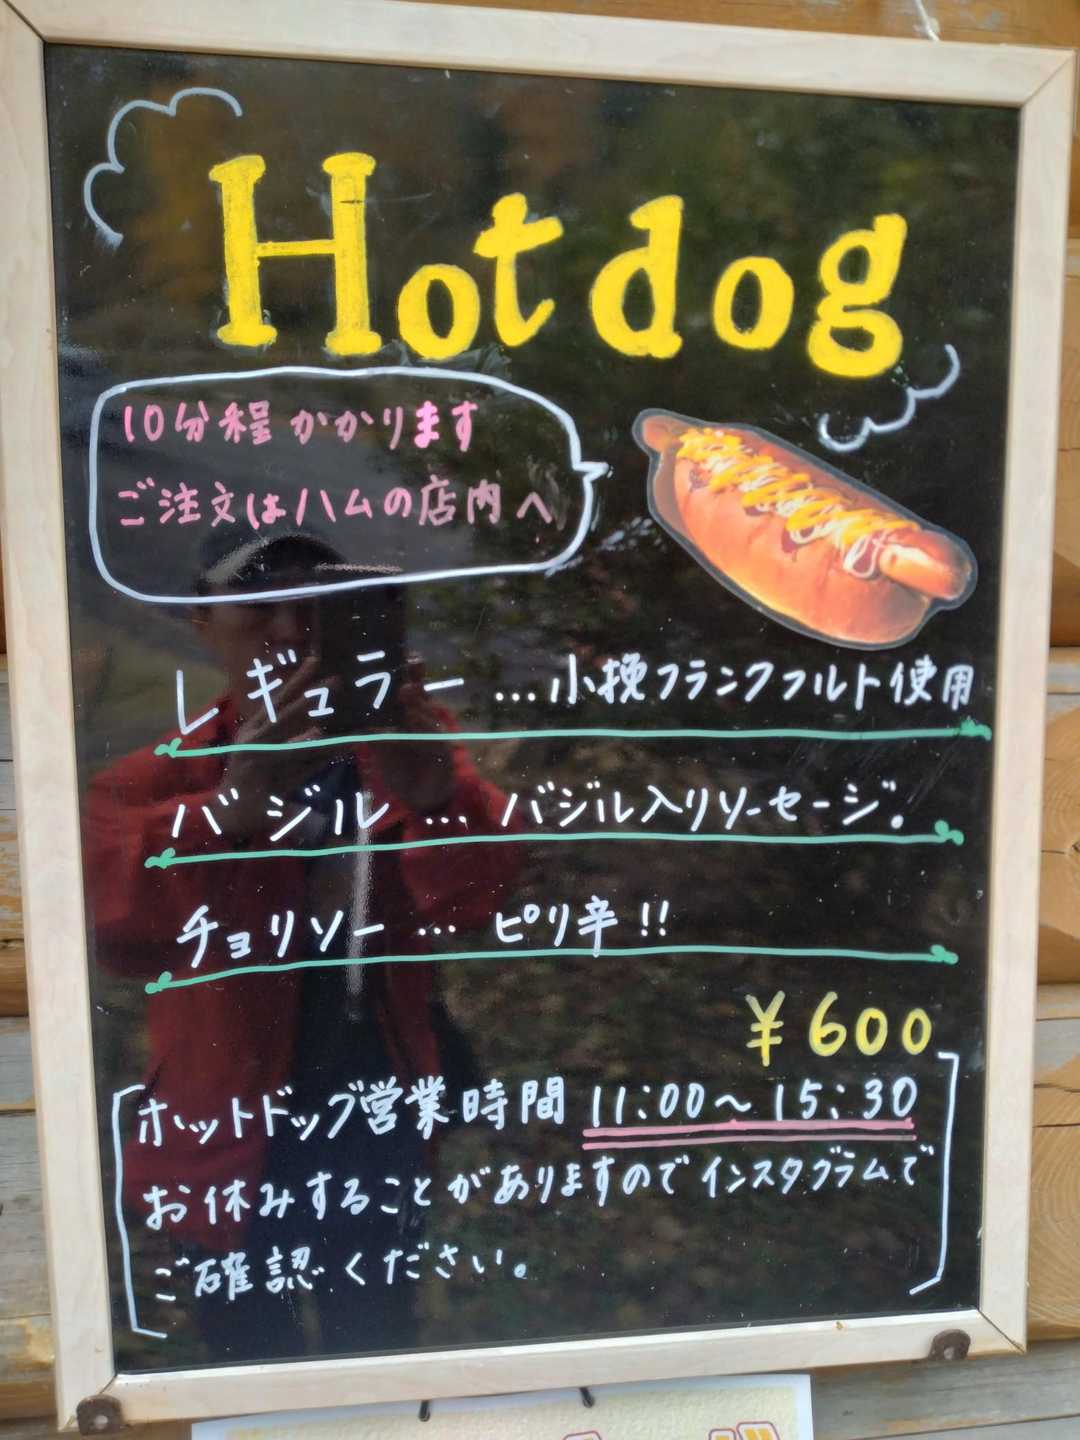 Hotdog
10分程かかります
ご注文はハムの店内へ
レギュラー…小挽フランクフルト使用
バジル…バジル入りソーセージ。
チョリソー…ピリ辛!!
¥600
ホットドッグ営業時間 11:00～15:30
お休みすることがありますのでインスタグラムで
ご確認ください。